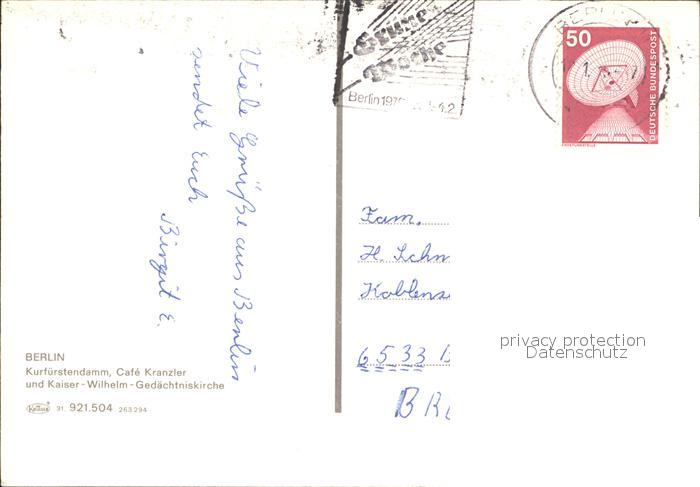 Viele Grüße aus Berlin
sendet Euch
Birgit E.
BERLIN
Kurfürstendamm, Café Kranzler
und Kaiser-Wilhelm-Gedächtniskirche
Krüger 31. 921.504 263294
Grüne
Woche
Berlin
BERLIN
50
DEUTSCHE BUNDESPOST
ERDEFUNKSTELLE
Fam.
H. Schn
Koblenz
6533 B
BRD
privacy protection
Datenschutz